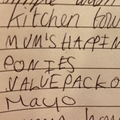 Kitchen tow
MUM'S HAPPIN
PONIES
VALUE PACK O
Mayo